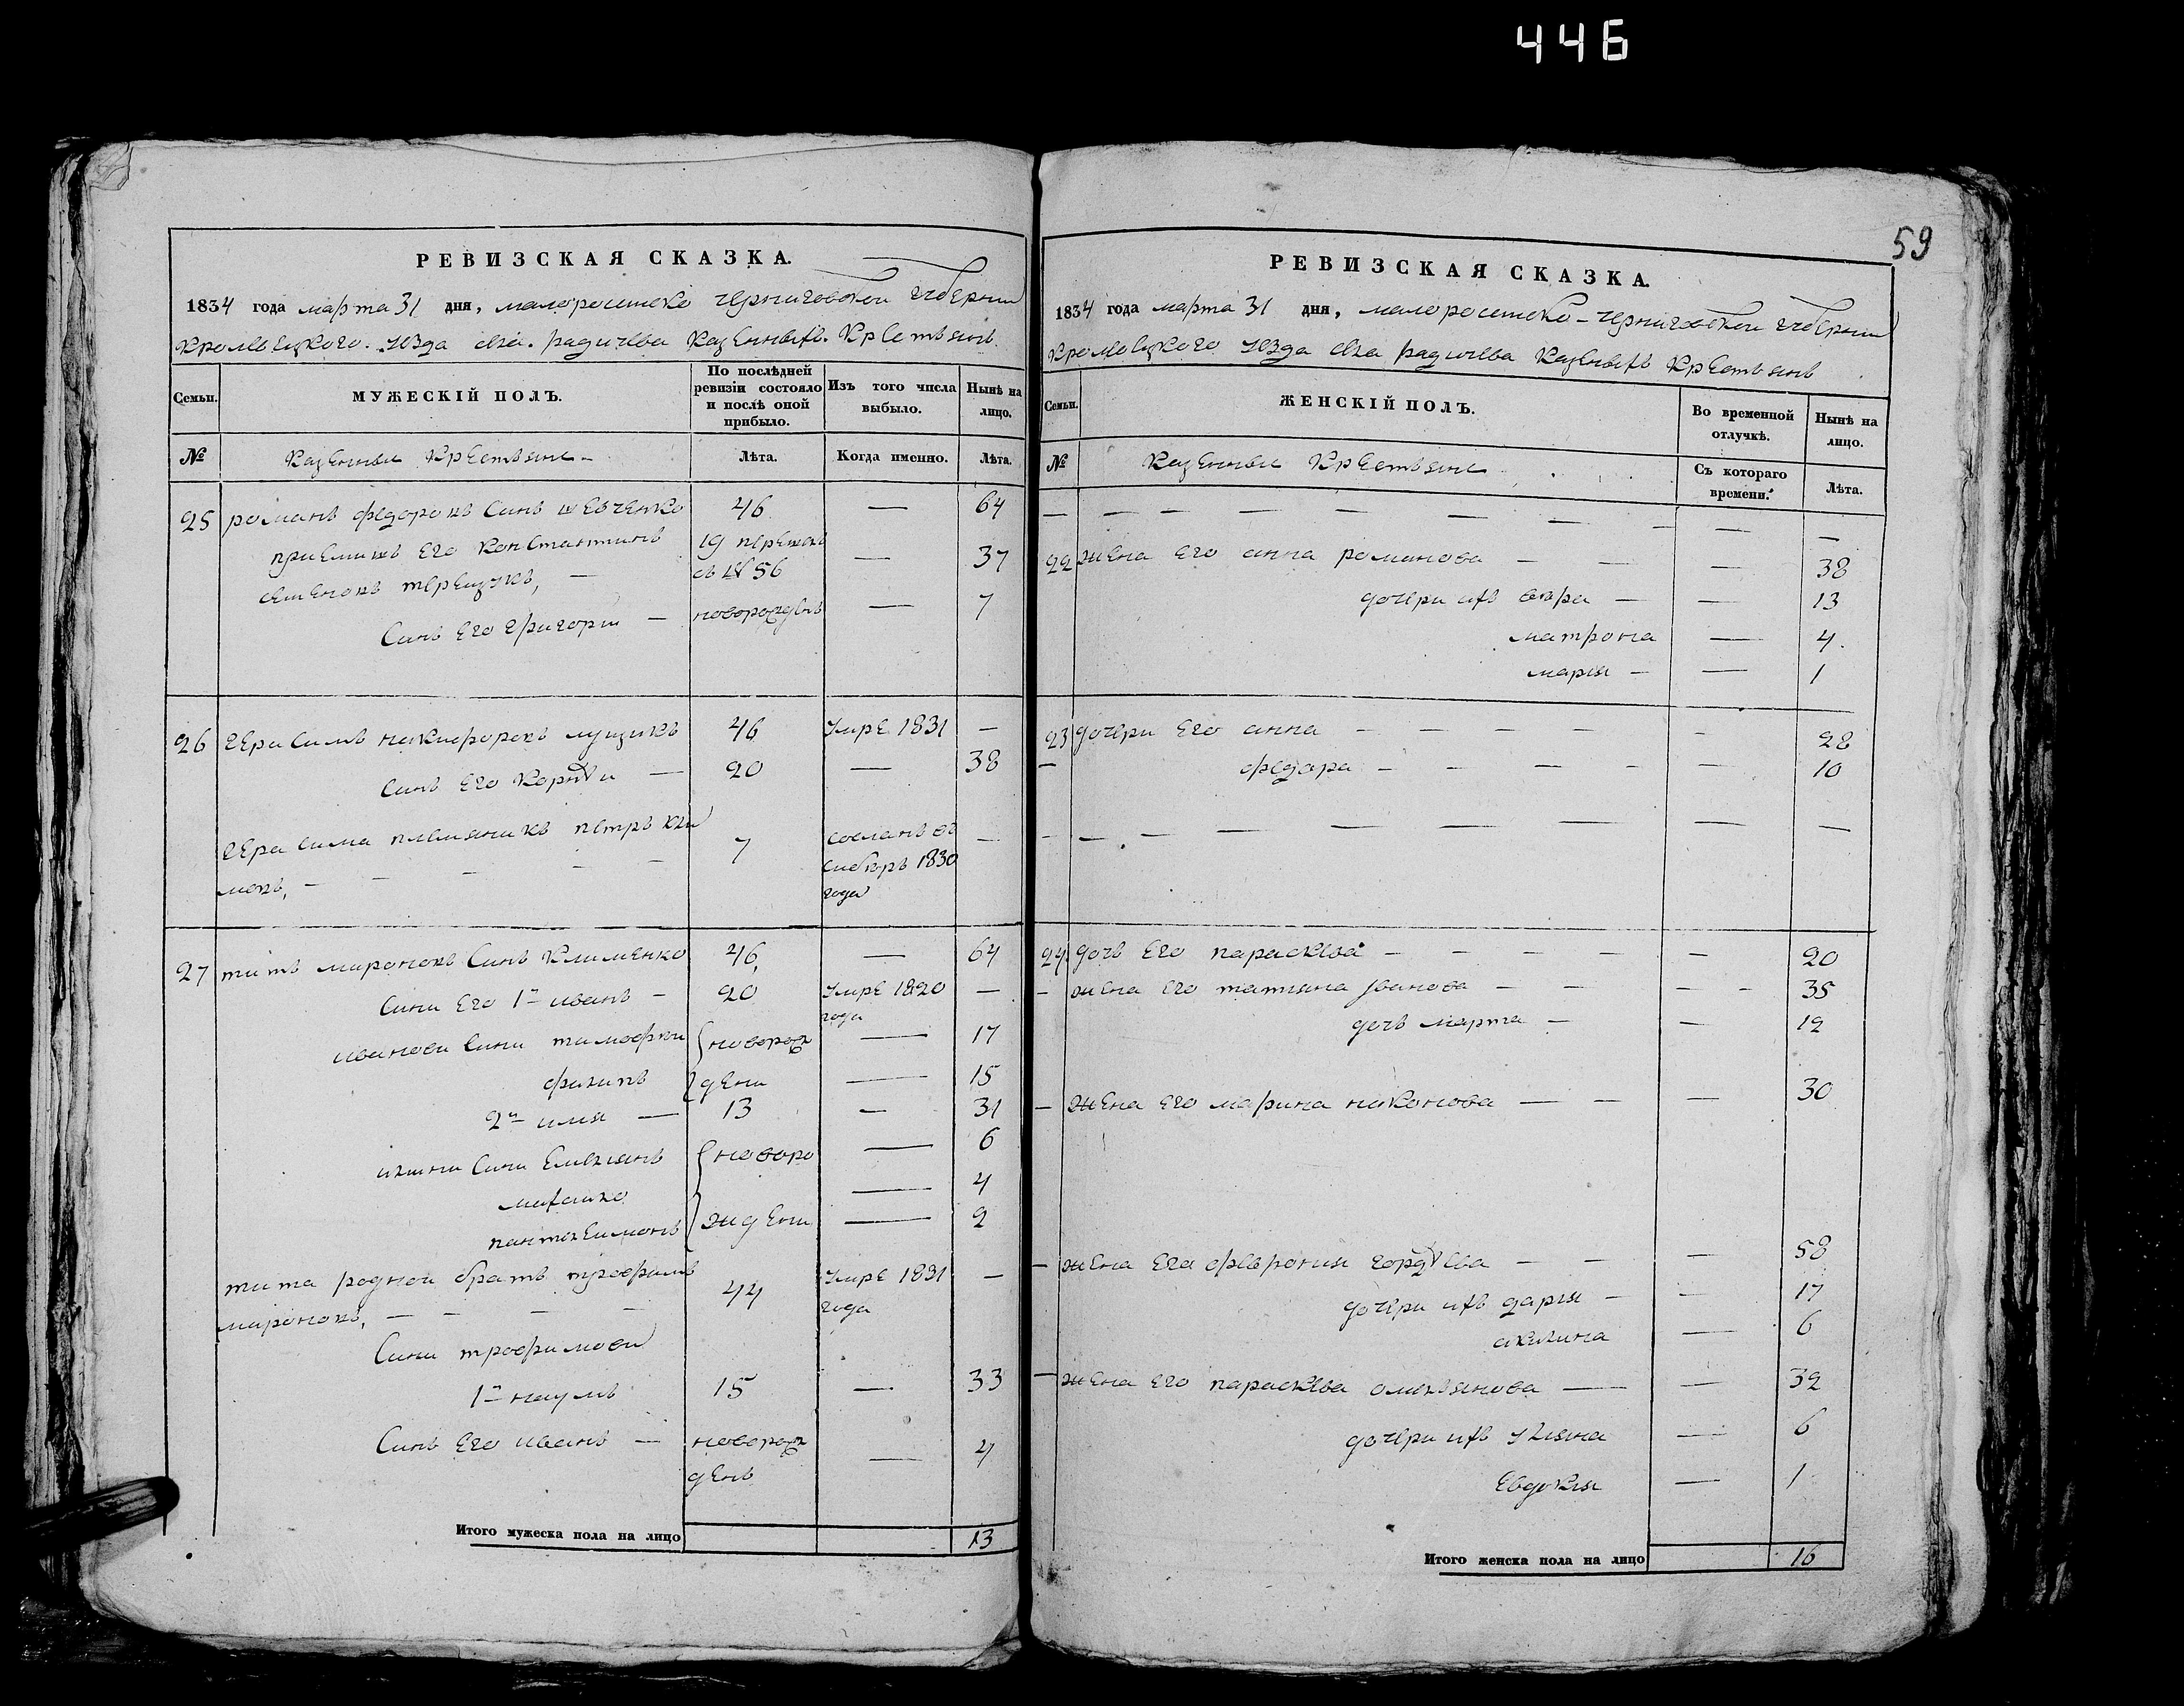 446
59
РЕВИЗСКАЯ СКАЗКА.
1834 года марта 31 дня, малоросииско черниговской губернии
Кролевецкого уезда села радичева Казенныхъ Крестьянъ
Семьи.
МУЖЕСКІЙ ПОЛЪ.
По послѣдней ревизіи состояло и послѣ оной прибыло.
Изъ того числа выбыло.
Нынѣ на лицо.
№
Казенныи Крестьяни
Лѣта.
Когда именно.
Лѣта.
25 романъ федоровъ Синъ шевченко 46 — 64
приемишъ Его Константинъ 19 перешолъ — 37
семеновъ терещукъ, — съ № 56
Синъ Его григорий — новорожденъ — 7
26 герасимъ никифоровъ лущикъ 46 Умре 1831 —
Синъ Его Корнѣи — 20 — 38
герасима племяникъ петръ кли 7 сосланъ въ —
мовъ, — — — — — Сибѣръ 1830
года
27 титъ мироновъ Синъ Клименко 46 — 64
Сини Его 1й иванъ — 20 Умре 1820 —
года
ивановы Сини тимофѣи новорож — 17
филипъ дени — 15
2й илия — 13 — 31
илини Сини Емельянъ новоро — 6
михаило — 4
пантелеимонъ ждени — 2
тита родной братъ трофимъ 44 Умре 1831 —
мироновъ, — — — — года
Сини трофимови
1й наумъ 15 — 33
Синъ Его иванъ — новорож — 4
денъ
Итого мужеска пола на лицо 13
РЕВИЗСКАЯ СКАЗКА.
1834 года марта 31 дня, малоросииско-черниговской губернии
Кролевецкого уезда села радичева Казеныхъ Крестьянъ
Семьи.
ЖЕНСКІЙ ПОЛЪ.
Во временной отлучкѣ.
Нынѣ на лицо.
№
Казенныи Крестьяни
Съ котораго времени.
Лѣта.
— — — — — — — — — —
22 жена Его анна романова — — — 38
дочери ихъ — — 13
матрона — 4
мария — — 1
23 дочери Его анна — — — — — 28
— федора — — — — — 10
— — — — — — — — —
24 дочъ Его парасквва — — — — — 20
— жена Его татияна Иванова — — — — 35
дочъ марта — — 12
— жена Его марина никонова — — — 30
— жена Его феврония гордѣева — — — 58
дочери ихъ дария — — 17
акилина — 6
— жена Его парасквва омельянова — — 32
дочери ихъ улияна — 6
Евдокия — 1
Итого женска пола на лицо 16